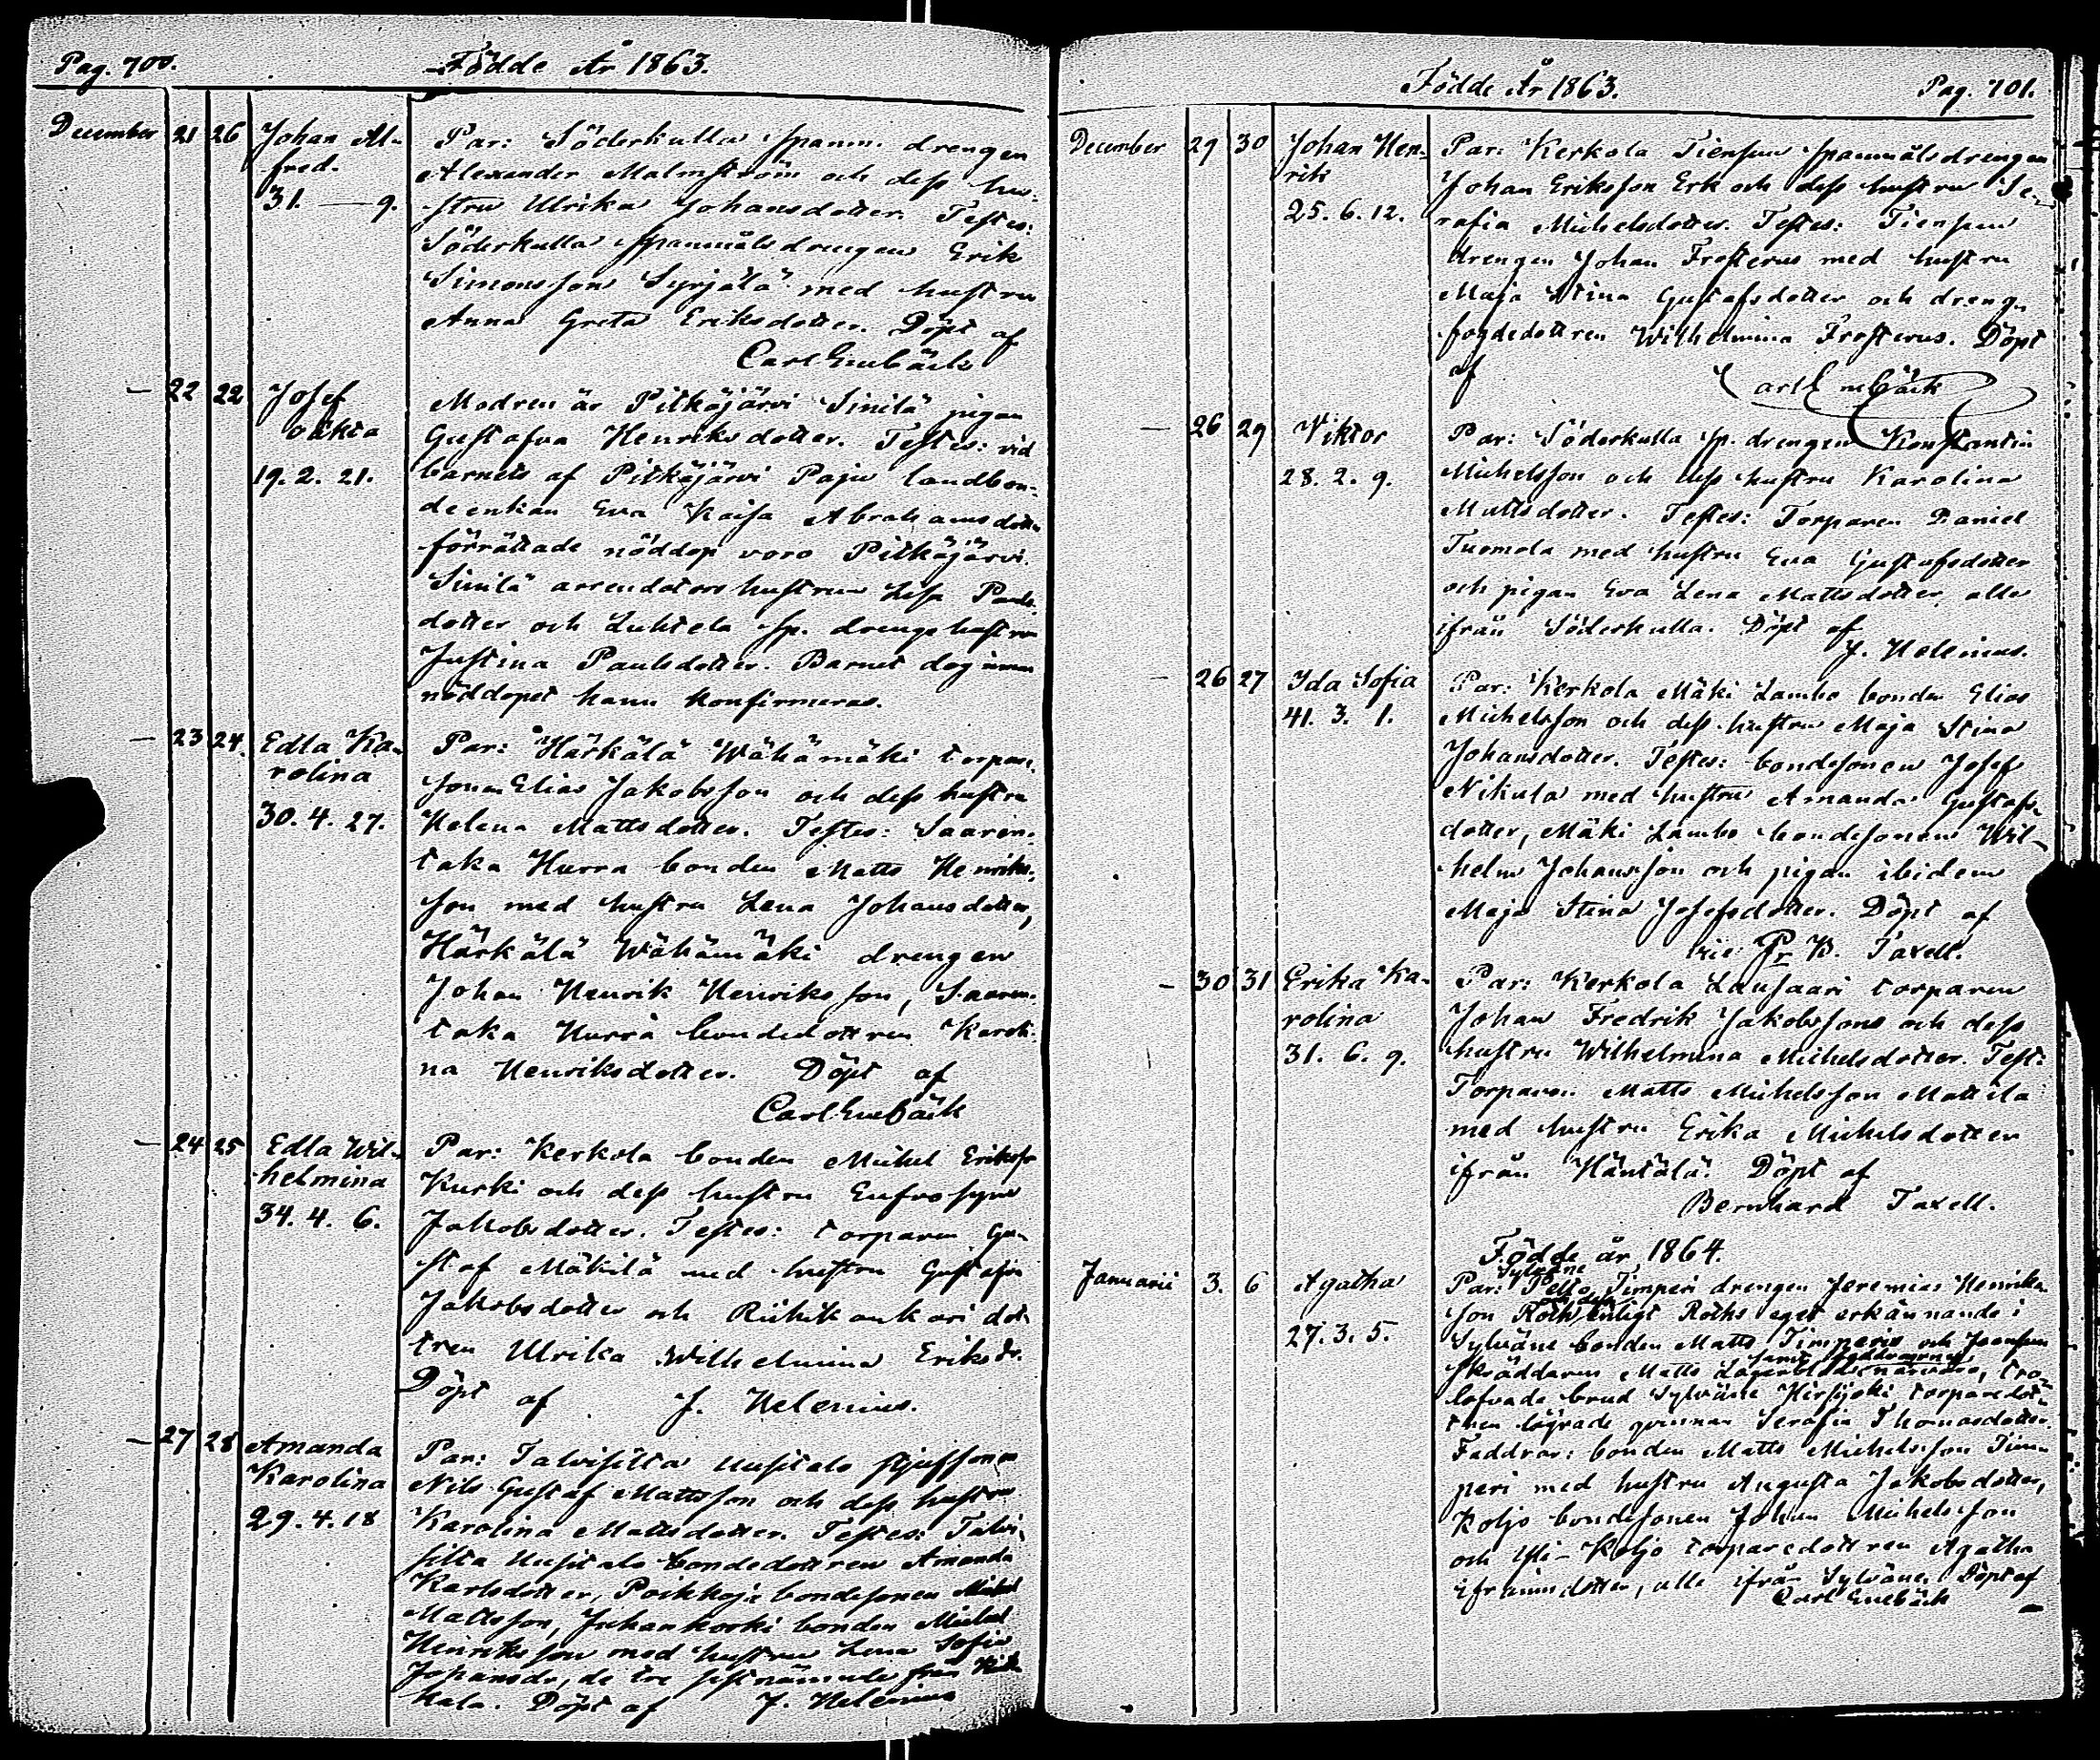 Pag. 700. Födde År 1863.
December 21 26 Johan Al-
fred.
31. — 9.
Par: Söderkulla spanm. drengen
Alexander Malmström och dess hu-
stru Ulrika Johansdotter. Testes:
Söderkulla spanmåls drengen Erik
Simonsson Syrjälä med hustru
Anna Greta Eriksdotter. Döpt af
Carl Enebäck
— 22 22 Josef
oäkta
19. 2. 21.
Modren är Pitkäjärvi Sinilä pigan
Gustafva Henriksdotter. Testes: vid
barnets af Pitkäjärvi Paju landbon-
deenkan Eva Kaisa Abrahamsdotter
förrättade nöddop voro Pitkäjärvi
Sinilä arrendators hustrun Lisa Pauls-
dotter och Luhtela sp. drengs hustrun
Justina Paulsdotter. Barnet dog innan
nöddopet hann konfirmeras.
— 23 24. Edla Ka-
rolina
30. 4. 27.
Par: Härkälä Wähämäki torpare-
sonen Elias Jakobsson och dess hustru
Helena Mattsdotter. Testes: Saaren-
taka Hurra bonden Matts Henriks-
son med hustru Lena Johansdotter,
Härkälä Wähämäki drengen
Johan Henrik Henriksson, Saaren-
taka Hurra bondedottren Karoli-
na Henriksdotter. Döpt af
Carl Enebäck
— 24 25 Edla Wil-
helmina
34. 4. 6.
Par: Kerkola bonden Michel Eriksson
Kurki och dess hustru Eufrosyne
Jakobsdotter. Testes: torparen Gu-
staf Mäkilä med hustru Gustafva
Jakobsdotter och Riihikankari dot-
tren Ulrika Wilhelmina Eriksdr.
Döpt af J. Helenius.
— 27 28 Amanda
Karolina
29. 4. 18
Par: Talvisilta Uusitalo stjufsonen
Nils Gustaf Mattsson och dess hustru
Karolina Mattsdotter. Testes: Talvi-
silta Uusitalo bondedottren Amanda
Karlsdotter, Poikkoja bondesonen Michel
Mattsson, Juhankorki bonden Michel
Henriksson med hustru Lena Sofia
Johansdr, de tre sistnämnde från
Döpt af J. Helenius
Födde År 1863. Pag. 701.
December 29 30 Johan Hen-
rik
25. 6. 12.
Par: Kerkola Tiensuu spanmålsdrengen
Johan Eriksson Erk och dess hustru Se-
rafia Michelsdotter. Testes: Tiensuu
drengen Johan Frosterus med hustru
Maja Stina Gustafsdotter och dreng-
fogdedottren Wilhelmina Frosterus. Döpt
af Carl Enebäck
— 26 29 Viktor
28. 2. 9.
Par: Söderkulla sp. drengen Konstantin
Michelsson och dess hustru Karolina
Mattsdotter. Testes: Torparen Daniel
Tuomola med hustru Eva Gustafsdotter
och pigan Eva Lena Mattsdotter alla
ifrån Söderkulla. Döpt af
J. Helenius.
— 26 27 Ida Sofia
41. 3. 1.
Par: Kerkola Mäki Lambo bonden Elias
Michelsson och dess hustru Maja Stina
Johansdotter. Testes: bondesonen Josef
Nikula med hustru Amanda Gustafs-
dotter, Mäki Lambo bondesonen Wil-
helm Johansson och pigan ibidem
Maja Stina Josefsdotter. Döpt af
B. Taxell.
— 30 31 Erika Ka-
rolina
31. 6. 9.
Par: Kerkola Lausaari torparen
Johan Fredrik Jakobsson och dess
hustru Wilhelmina Michelsdotter. Test:
Torparen Matts Michelsson Mattila
med hustru Erika Michelsdotter
ifrån Häntälä. Döpt af
Bernhard Taxell.
Födde år 1864.
Januarii 3. 6 Agatha
27. 3. 5.
Sylväne
Par: Pelto Timperi drengen Jeremias Henriks-
son Roth enligt Roths eget erkännande i
Sylväne bonden Matts Timperis och Joensuu
skräddaren Matts närvaro, tro-
lofvade brud Sylväne Hirsijoki torparedot-
tren lägrade qvinnan Serafia Thomasdotter.
Faddrar: bonden Matts Michelsson Tim-
peri med hustru Augusta Jakobsdotter,
Koljo bondesonen Johan Michelsson
och Yli-Koljo torparedottren Agatha
Efraimsdotter, alla ifrån Sylväne. Döpt af
Carl Enebäck